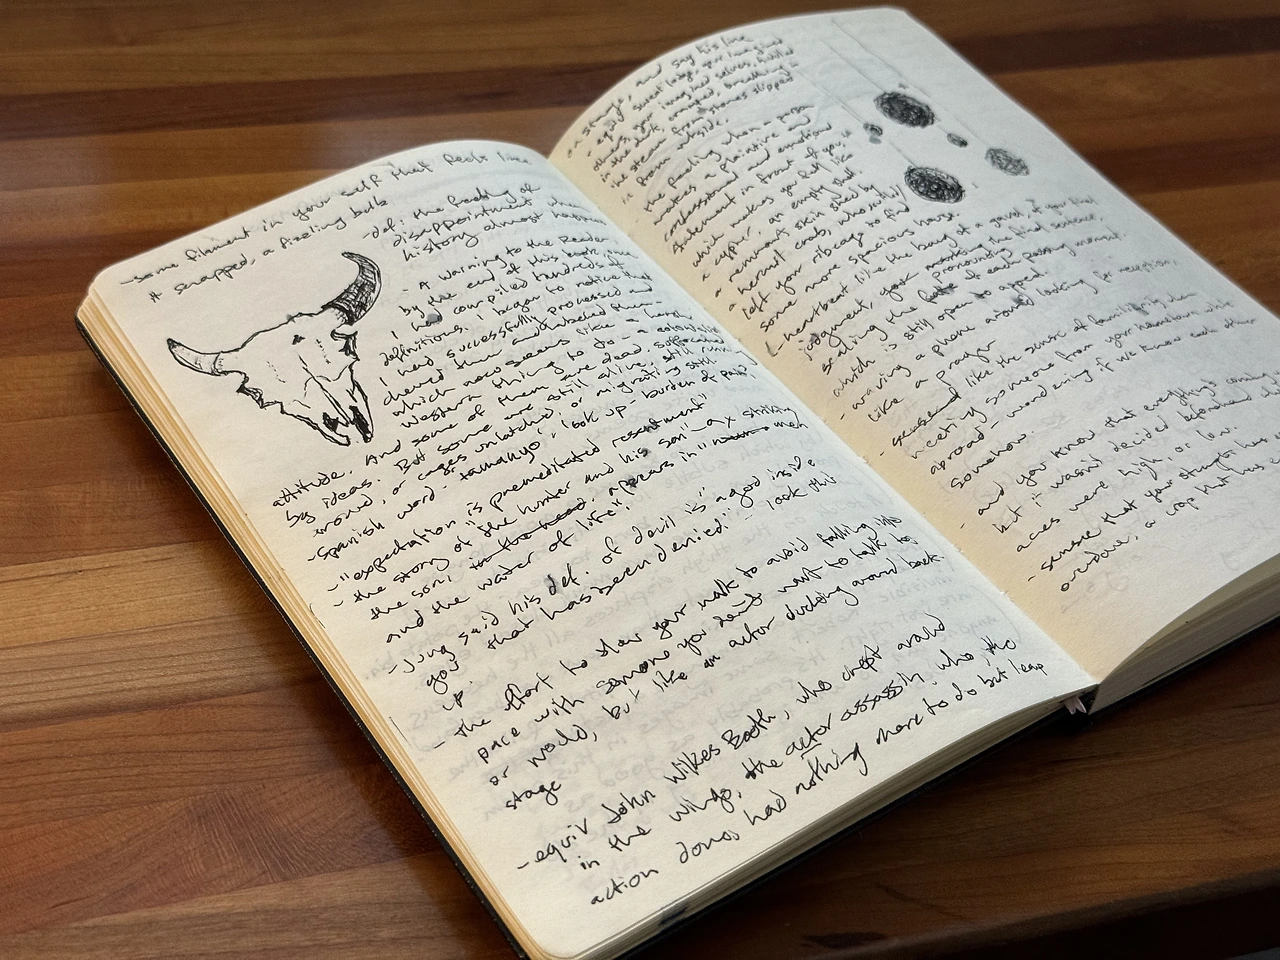 some filament in your self that feels like
it snapped, a fizzling bulb
-def: the freddy of
disappointment when
history almost happens
- A warning to the Reader:
by the end of this book, since
I had compiled hundreds of
definitions, I began to notice that
I had successfully processed and
chewed them and labeled them –
which now seems like a harsh
western thing to do – a colonialist
attitude. And some of them are dead, suffocated
by ideas. But some are still alive, still running
around, or cages unlatched, or migrating still
-Spanish word "tamanyo" – look up – burden of past.
-"expectation is premeditated resentment"
- the story of "the hunter and his son" – ax striking
the son, in the head, appears in "men
and the water of life".
- Jung said his def. of devil is "a good inside
you that has been denied" – look this
up.
- the effort to slow your walk to avoid falling into
pace with someone you don't want to talk to,
or would, but like an actor ducking around back.
stage
- equiv John Wilkes Booth, who crept around
in the wings, the actor assassin, who, the
action done, had nothing more to do but leap
on stage, and say his line
- equiv sweat lodge, your imagined
others, your imagined selves, huddled
in the dark, cramped, breathing in
the steam from stones slipped
from outside.
- the feeling when a person
makes a plaintive and
confessional and emotional
statement in front of you,
which makes you feel like
a cypher, an empty shell
a remnant skin shed by
a hermit crab, who sadly
left your ribcage to find
some more spacious house.
- heartbeat like the bang of a gavel, of your final
judgment, pronouncing the final sentence,
sealing the fate of each passing moment.
which is still open to appeal.
- waving a phone around looking for reception,
like a prayer
- like the sense of family by
meeting someone from your hometown while
abroad – wondering if we know each other
somehow.
- and you know that everything's
but it wasn't decided beforehand
aces were high, or low.
- sense that your strength has
overdone, a crop that has